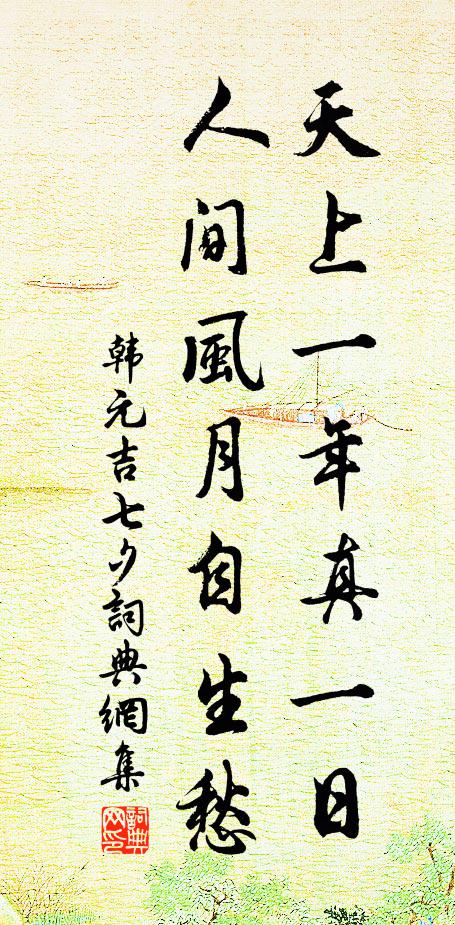 天上一年真一日
人间風月自生愁
韩元吉七夕詞典網集
詞典
网印